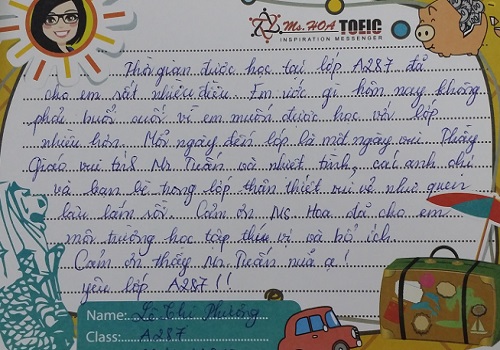 Ms.HOA TOEIC
INSPIRATION MESSENGER
Thời gian được học tại lớp A287 đã
cho em rất nhiều điều. Em ước gì hôm nay không
phải buổi cuối vì em muốn được học với lớp
nhiều hơn. Mỗi ngày đến lớp là một ngày vui. Thầy
Giáo vui tính Mr Tuấn và nhiệt tình, các anh chị
và bạn bè trong lớp thân thiết vui vẻ như quen
lâu lắm rồi. Cảm ơn Ms Hoa đã cho em
môi trường học tập thú vị và bổ ích
Cảm ơn thầy Mr. Tuấn nữa ạ!
yêu lớp A287!!
Name: Lê Thị Phương
Class: A287